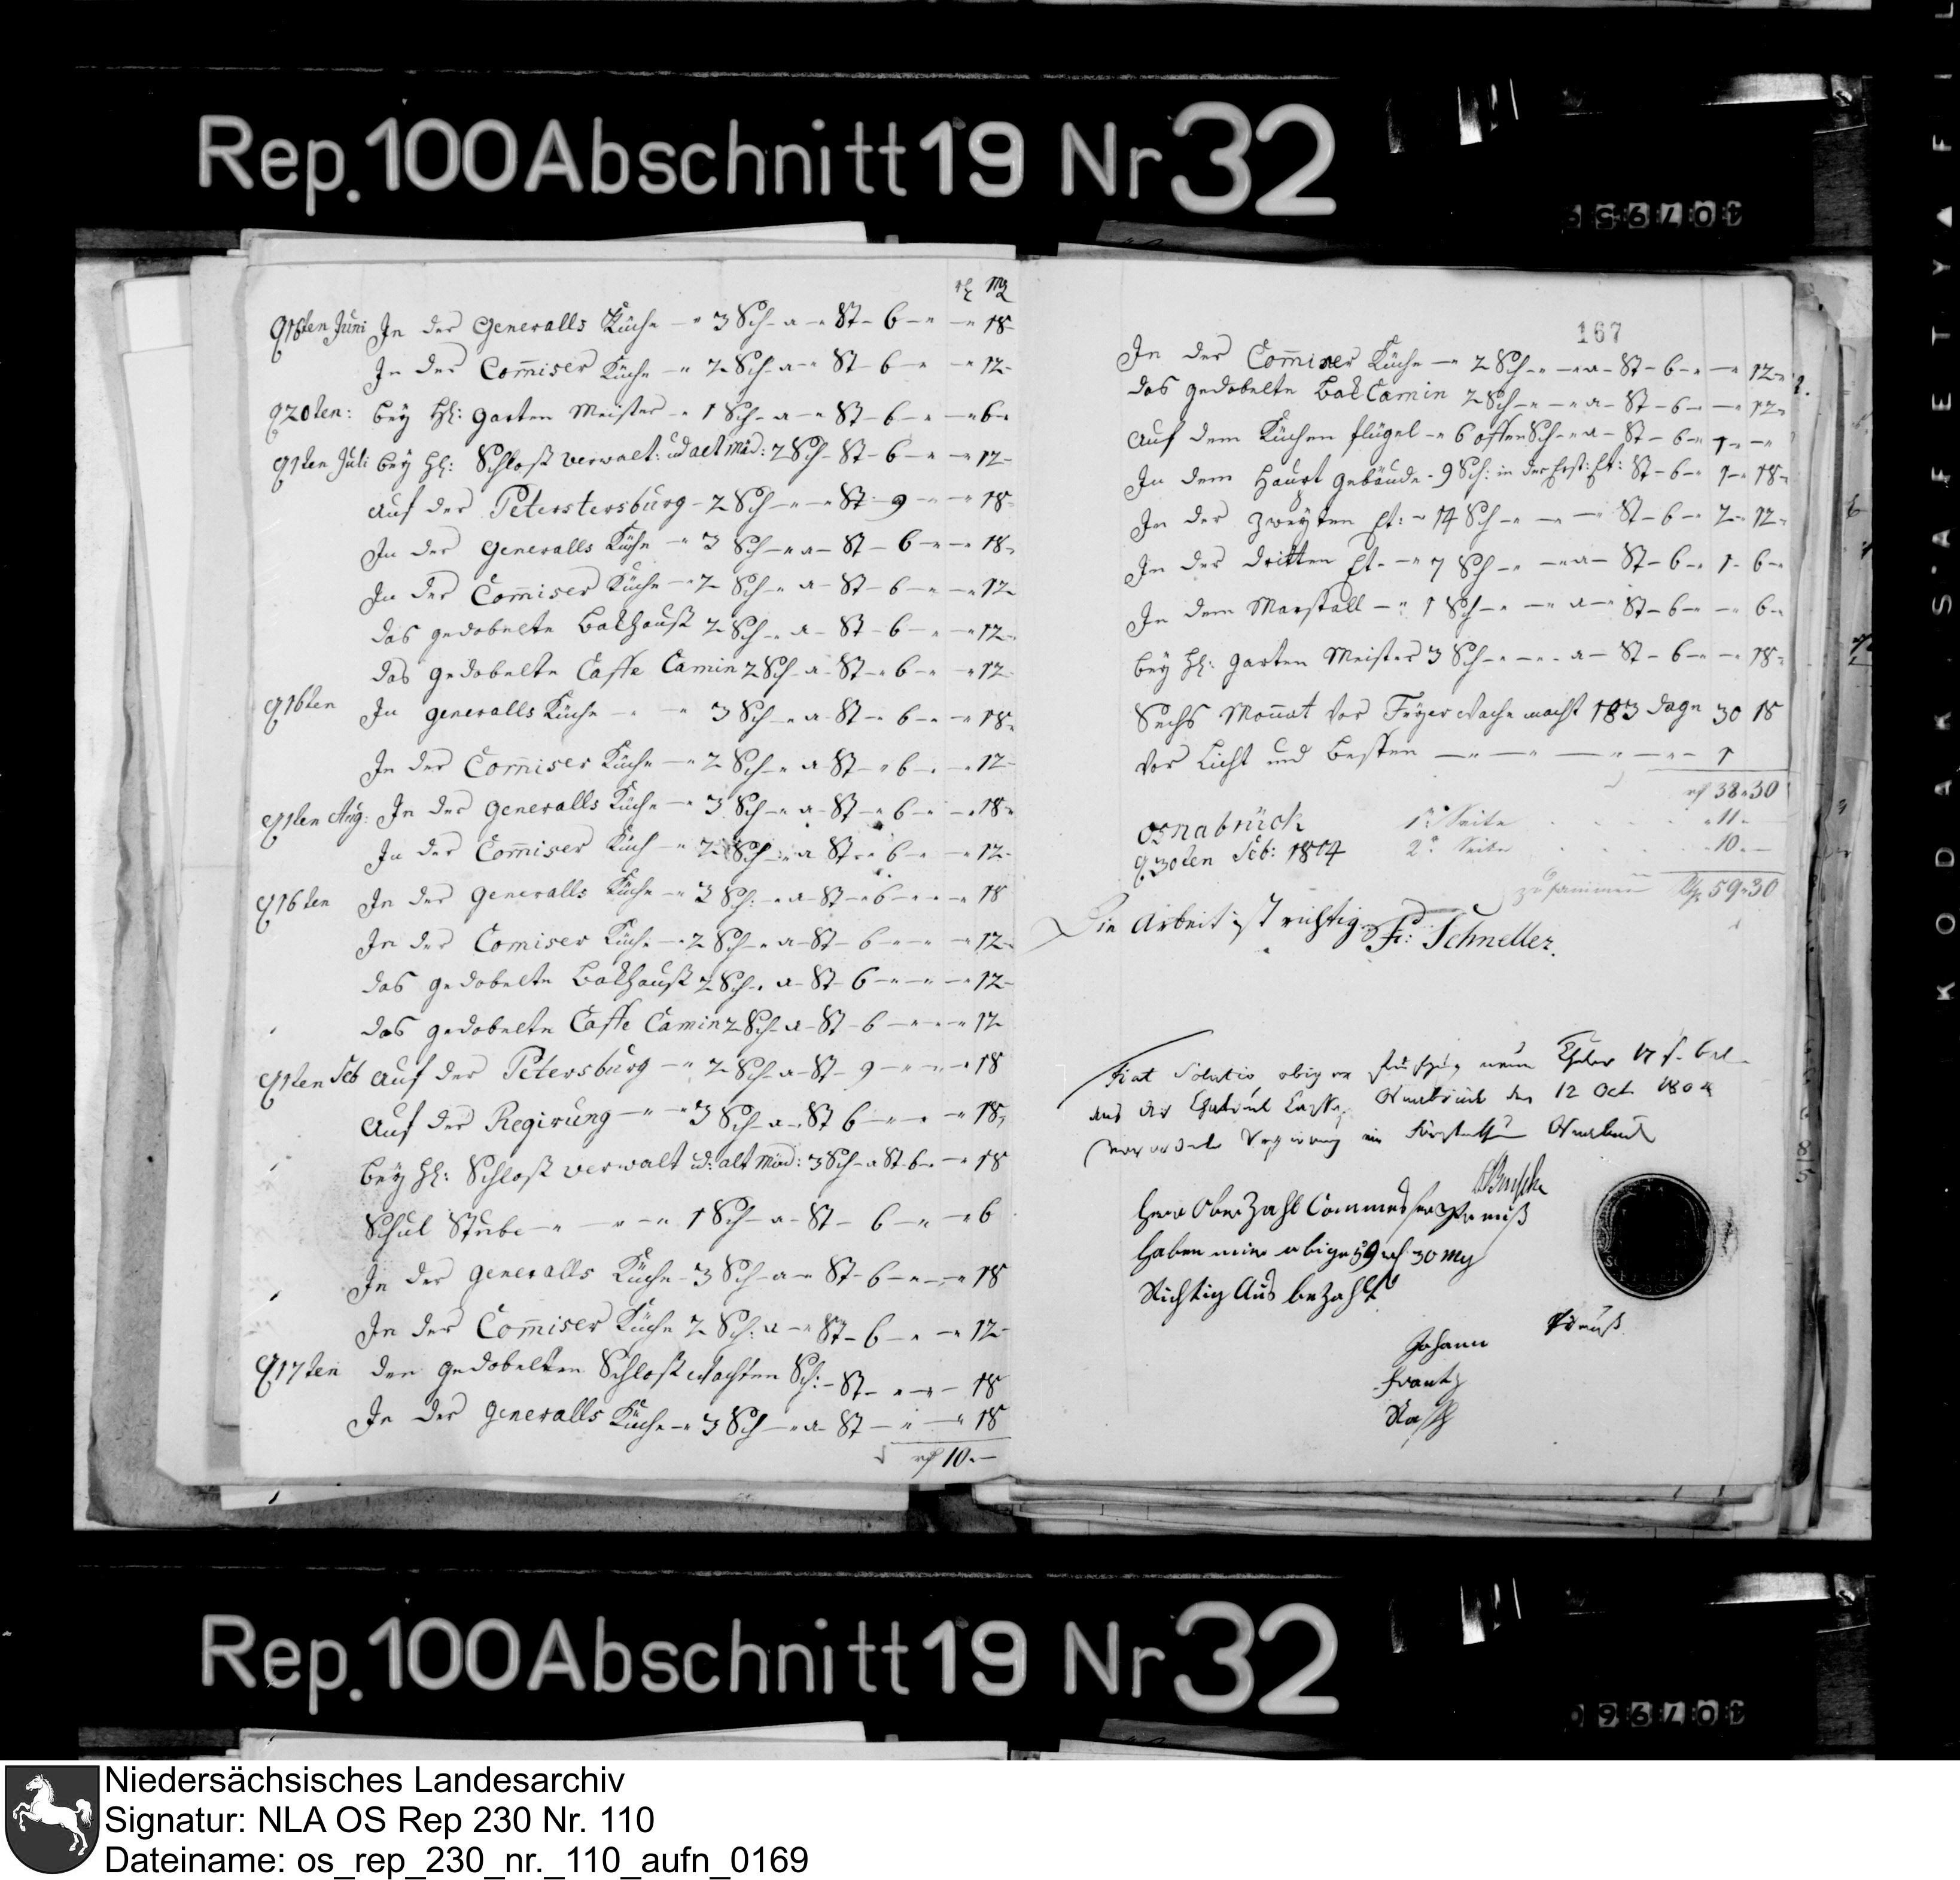 Rep. 100 Abschnitt 19 Nr 32
rℓ mg
d 16ten Juni In der Generalls Küche — 3 Sch - a - St - 6 - - 18
In der Com̄iser Küche — 2 Sch - a - St - 6 - - 12
d 20ten: bey HE: garten Meister - 1 Sch - a - St - 6 - - 6
d 1ten Juli bey HE: Schloß verwalt: ud alt Mäd: 2 Sch - St - 6 - - 12
auf der Peterstersburg - 2 Sch - - St - 9 - - 18
In der Generalls Küche - 3 Sch - a - St - 6 - - 18
In der Com̄iser Küche - 2 Sch - a - St - 6 - - 12
das gedobelte Bakhauß 2 Sch - a - St - 6 - - 12
das gedobelte Caffe Camin 2 Sch - a - St - 6 - - 12
d 16ten In generalls Küche - - 3 Sch - a - St - 6 - - 18
In der Com̄iser Küche - 2 Sch - a - St - 6 - - 12
d 1ten Aug: In der generalls Küche - 3 Sch - a - St - 6 - - 18
In der Com̄iser Küch - 2 Sch - a St - 6 - - 12
d 16ten In der generalls Küche - 3 Sch: - a - St - 6 - - 18
In der Comiser Küche - 2 Sch - a - St - 6 - - 12
das gedobelte Bakhauß 2 Sch - a - St - 6 - - 12
das gedobelte Caffe Camin 2 Sch - a - St - 6 - - 12
d 1ten Seb auf der Petersburg - 2 Sch - a - St - 9 - - 18
auf der Regirung - - 3 Sch - a - St 6 - - 18
bey HE: Schloß verwalt ud: alt Mäd: 3 Sch - a St - 6 - - 18
Schul Stube - - - 1 Sch - a - St - 6 - - 6
In der generalls Küche - 3 Sch - a - St - 6 - - 18
In der Com̄iser Küche 2 Sch: a - St - 6 - - 12
d 17ten den gedobelten Schloßwachten Sch: - St - - - 18
In der generalls Küche - 3 Sch - a - St - - 18
rℓ 10 . —
167
In der Com̄iser Küche - 2 Sch - - a - St - 6 - - 12
das gedobelte Bak Camin 2 Sch - - a - St - 6 - - 12
auf dem Küchen flügel - 6 offen Sch - a - St - 6 - 1 - -
In dem Haupt gebäude - 9 Sch: in der Erst: Et: St - 6 - 1 - 18
In der zweyten Et: - 14 Sch - - - St - 6 - 2 - 12
In der dritten Et - 7 Sch - - a - St - 6 - 1 - 6
In dem Marstall - 1 Sch - - a - St - 6 - - 6
bey HE: garten Meister 3 Sch - - - a - St - 6 - - 18
Sechs Mon̄at vor Feyerwache macht 183 dage 30 18
vor Licht und Besten - - - - - 1
rℓ 38 " 30
Osnabrück 1te Seite . . . . " 11 . —
d 30ten Seb: 1804 2te Seite . . . . - 10 . —
zusammen Rℓ 59 " 30
Die Arbeit ist richtig. Fr: Schneller.
Fiat Solutio obiger funfzig neun Thaler
aus der Osnabrück den 12 Oct 1804
Regierung
Herr Ober Zahl Commissar Preuß
haben mir obige 59 rℓ 30 mg
Richtig Aus bezahlt
Preuß
Johann
Frantz
Niedersächsisches Landesarchiv
Signatur: NLA OS Rep 230 Nr. 110
Dateiname: os_rep_230_nr._110_aufn_0169
Rep. 100 Abschnitt 19 Nr 32
KODAK SAFETY FIL